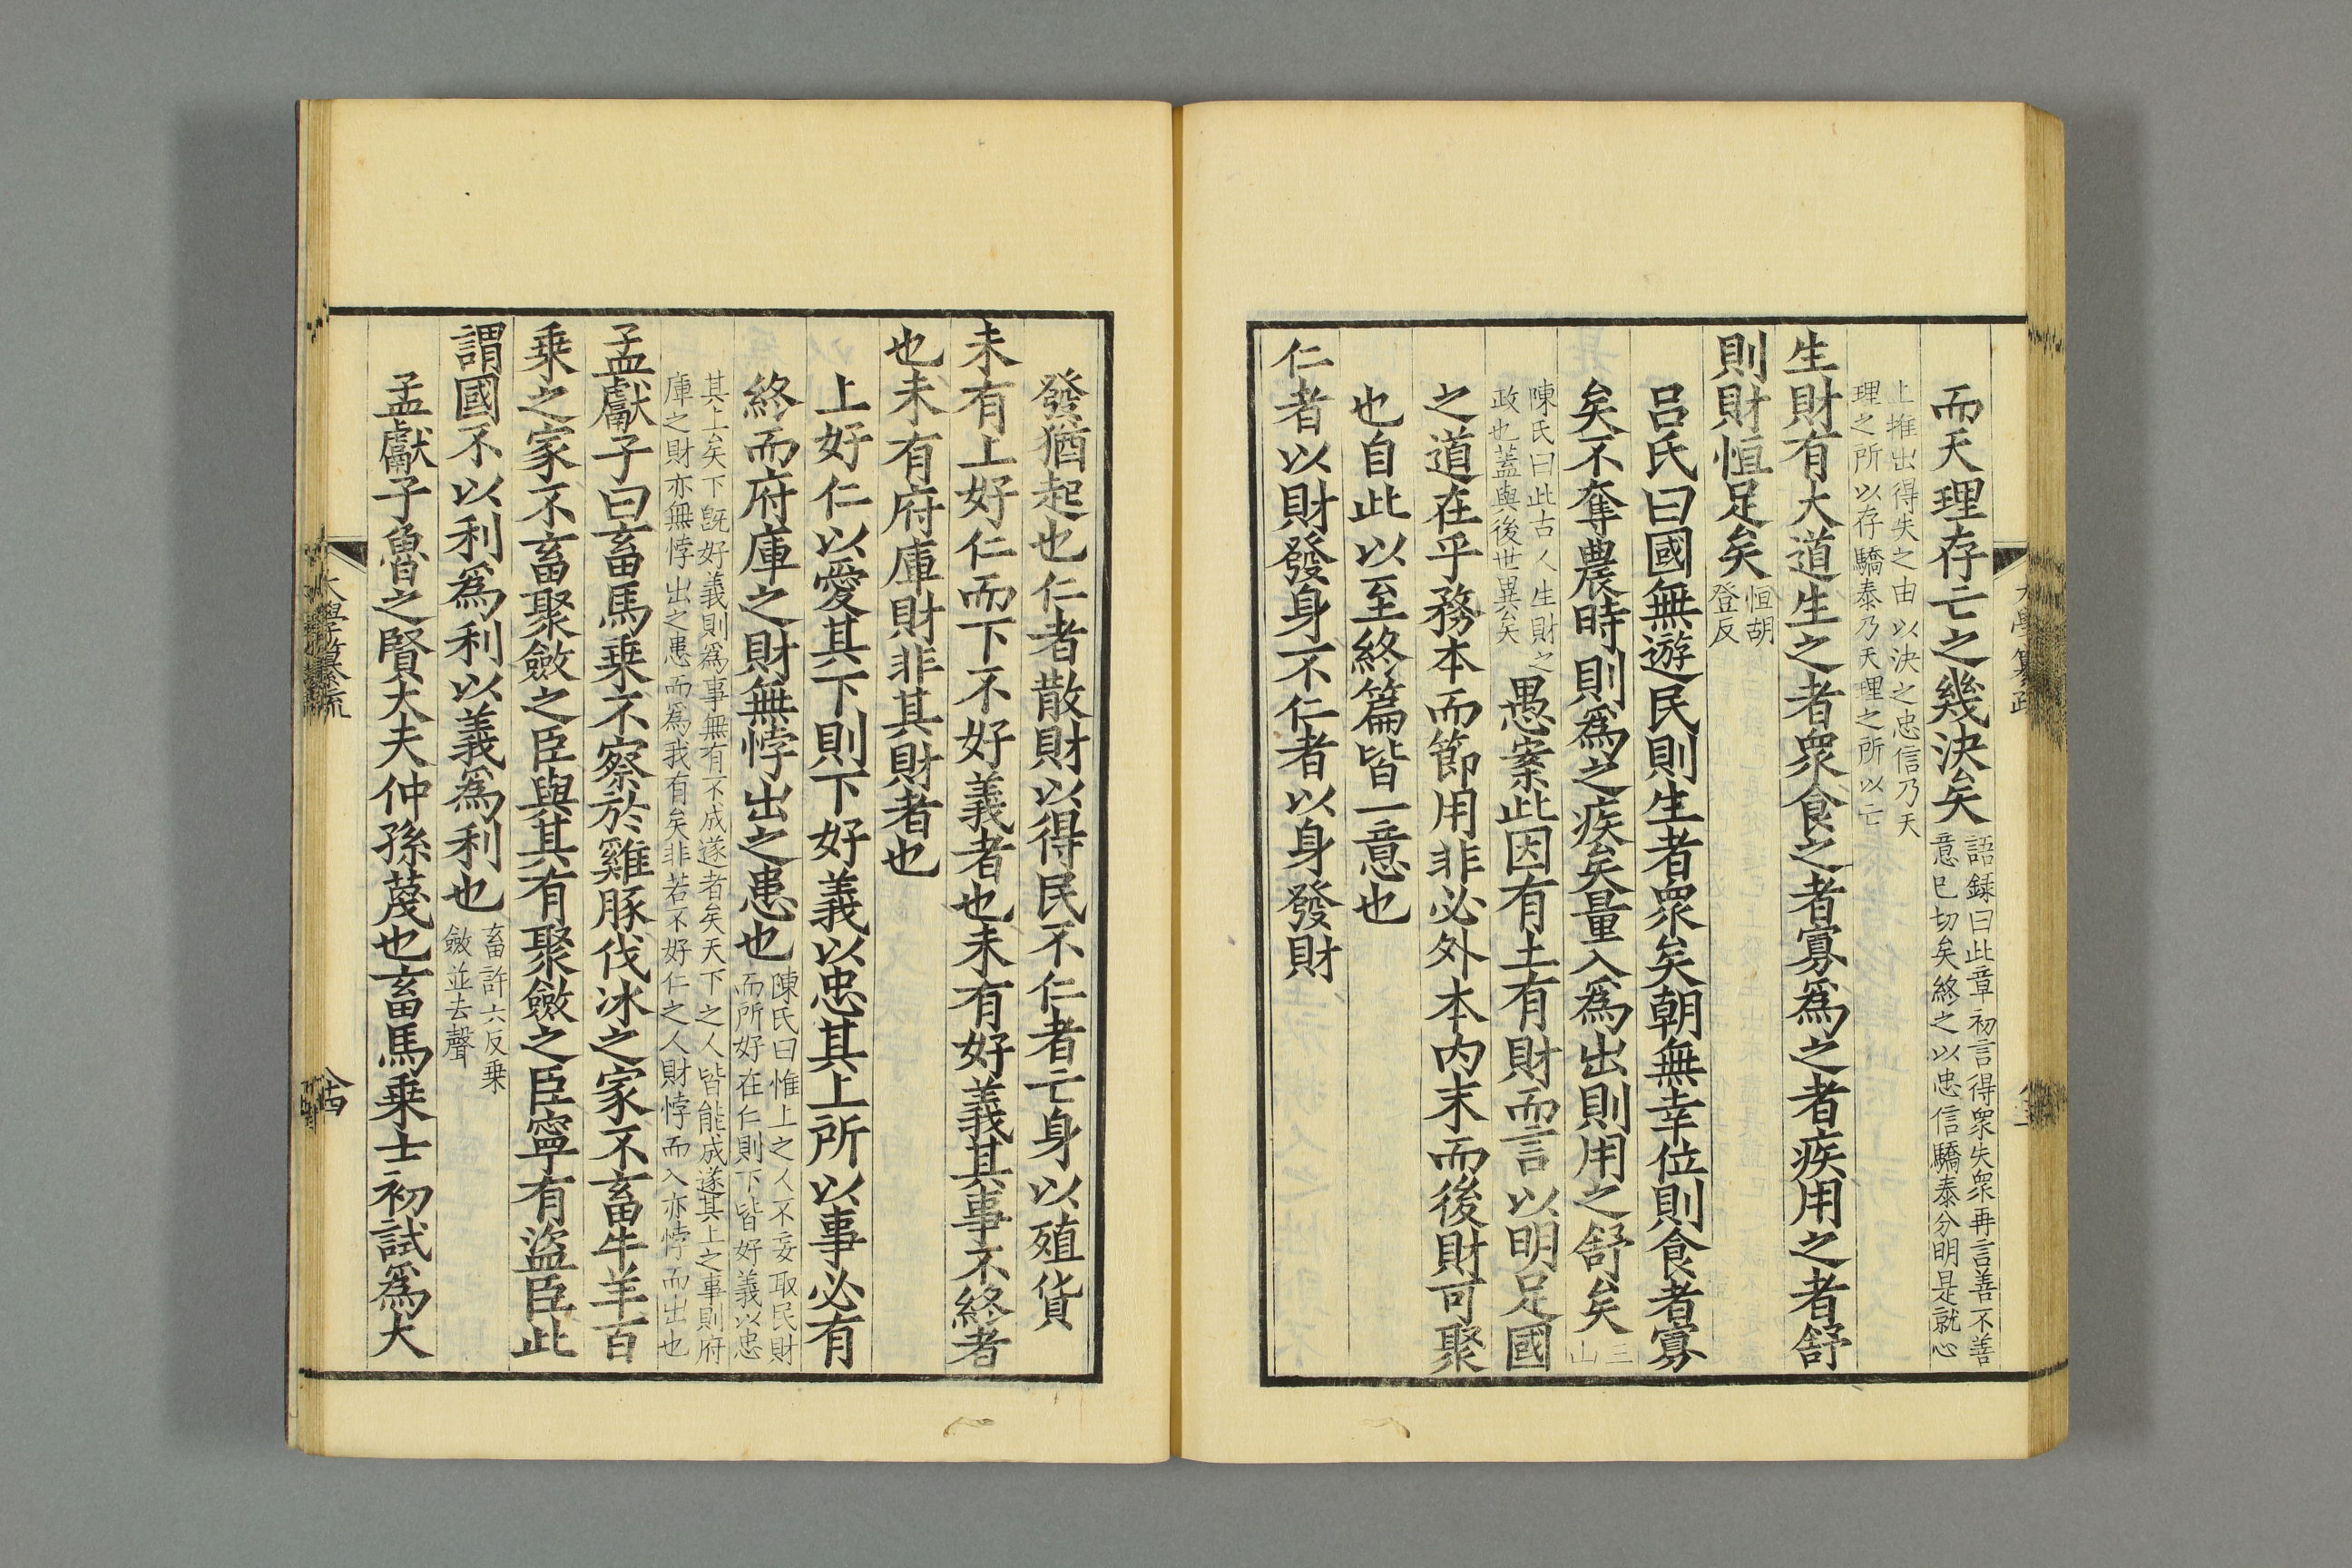 而天理存亡之幾決矣語録曰此章初言得衆失衆再言善不善
意已切矣終之以忠信驕泰分明是就心
上推出得失之由以決之忠信乃天
理之所以存驕泰乃天理之所以亡
生財有大道生之者衆食之者寡爲之者疾用之者舒
則財恒足矣恒胡
登反
呂氏曰國無遊民則生者衆矣朝無幸位則食者寡
矣不奪農時則爲之疾矣量入爲出則用之舒矣三
山
陳氏曰此古人生財之
政也蓋與後世異矣
愚案此因有土有財而言以明足國
之道在乎務本而節用非必外本内末而後財可聚
也自此以至終篇皆一意也
仁者以財發身不仁者以身發財
發猶起也仁者散財以得民不仁者亡身以殖貨
未有上好仁而下不好義者也未有好義其事不終者
也未有府庫財非其財者也
上好仁以愛其下則下好義以忠其上所以事必有
終而府庫之財無悖出之患也陳氏曰惟上之人不妄取民財
而所好在仁則下皆好義以忠
其上矣下既好義則爲事無有不成遂者矣天下之人皆能成遂其上之事則府
庫之財亦無悖出之患而爲我有矣非若不好仁之人財悖而入亦悖而出也
孟獻子曰畜馬乗不察於雞豚伐冰之家不畜牛羊百
乗之家不畜聚斂之臣與其有聚斂之臣寧有盜臣此
謂國不以利爲利以義爲利也畜許六反乗
斂並去聲
孟獻子魯之賢大夫仲孫蔑也畜馬乗士初試爲大
大學纂疏